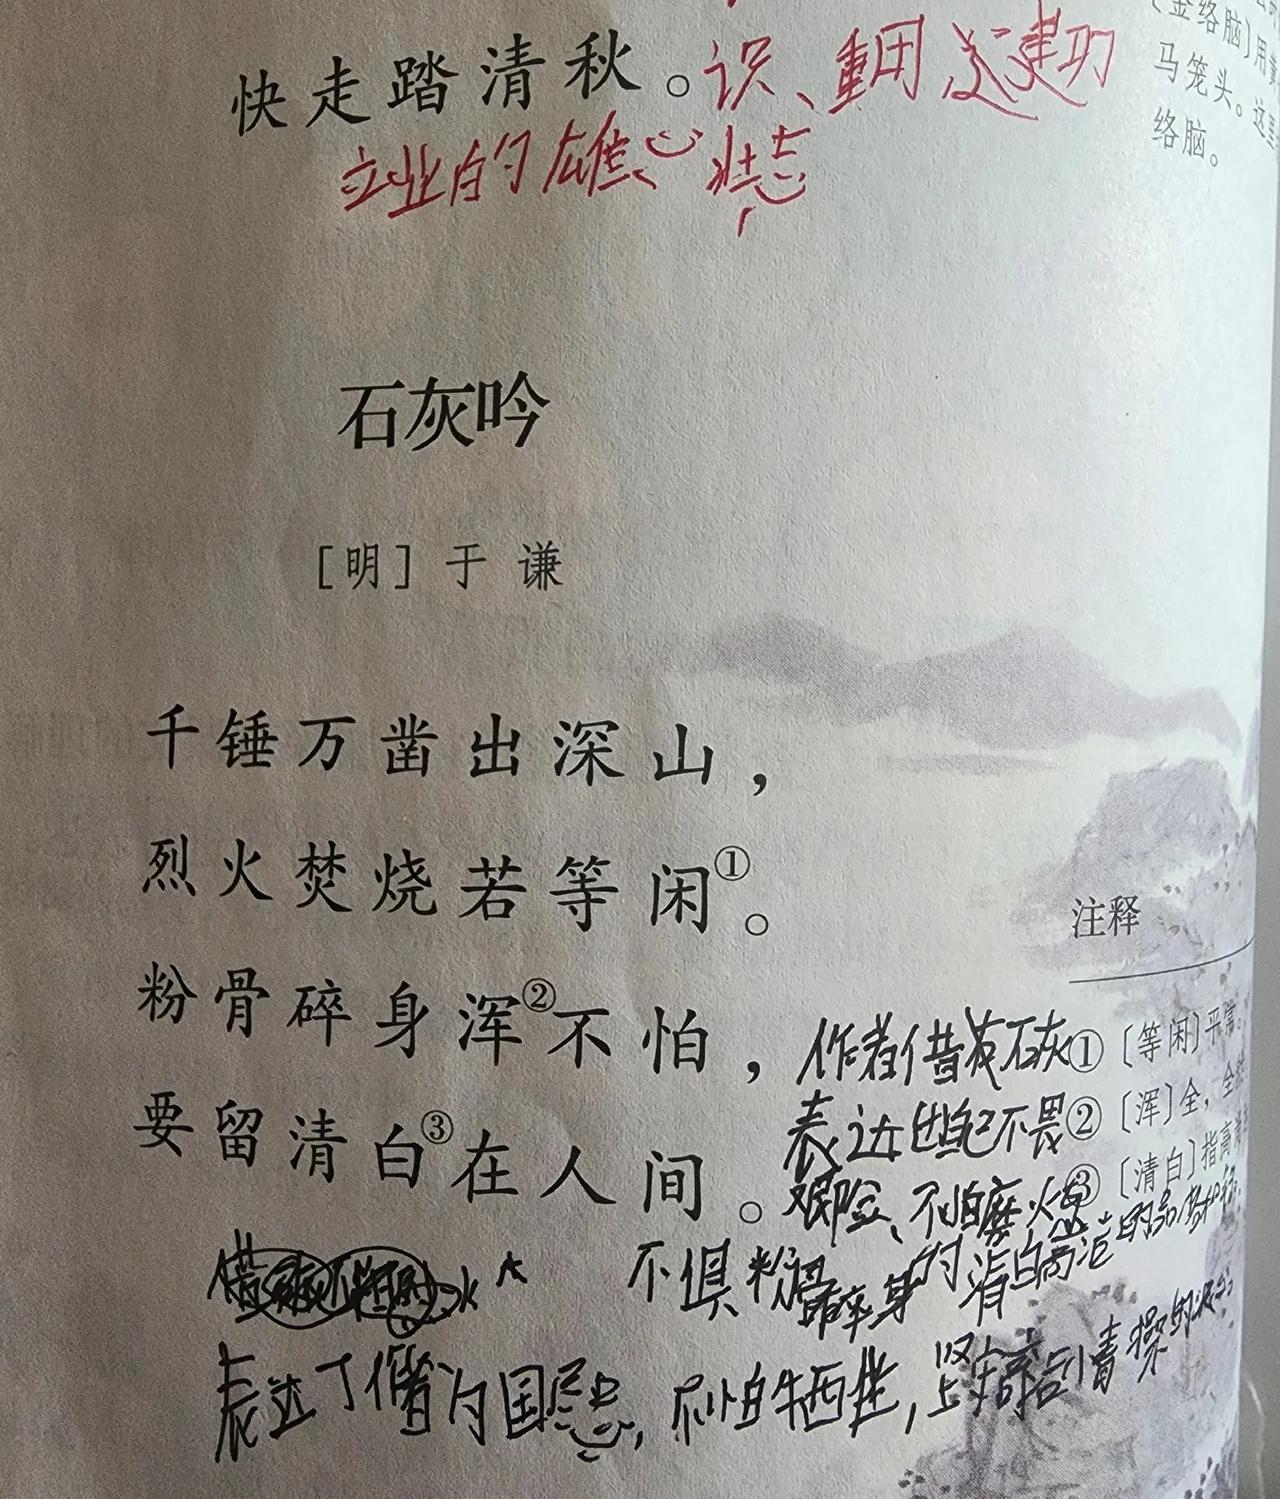 [金络脑]用黄
马笼头。这里
络脑。
快走踏清秋。识、重用建功
立业的雄心壮志
石灰吟
[明]于谦
千锤万凿出深山，
烈火焚烧若等闲①。
粉骨碎身浑②不怕，
要留清白③在人间。
注释
①[等闲]平常。
②[浑]全，全然
③[清白]指高
作者借石灰
表达自己不畏
艰险、不怕磨
不惧粉骨碎身的清白高洁的品格
表达了作者为国尽忠，不怕牺牲，坚守高洁情操的